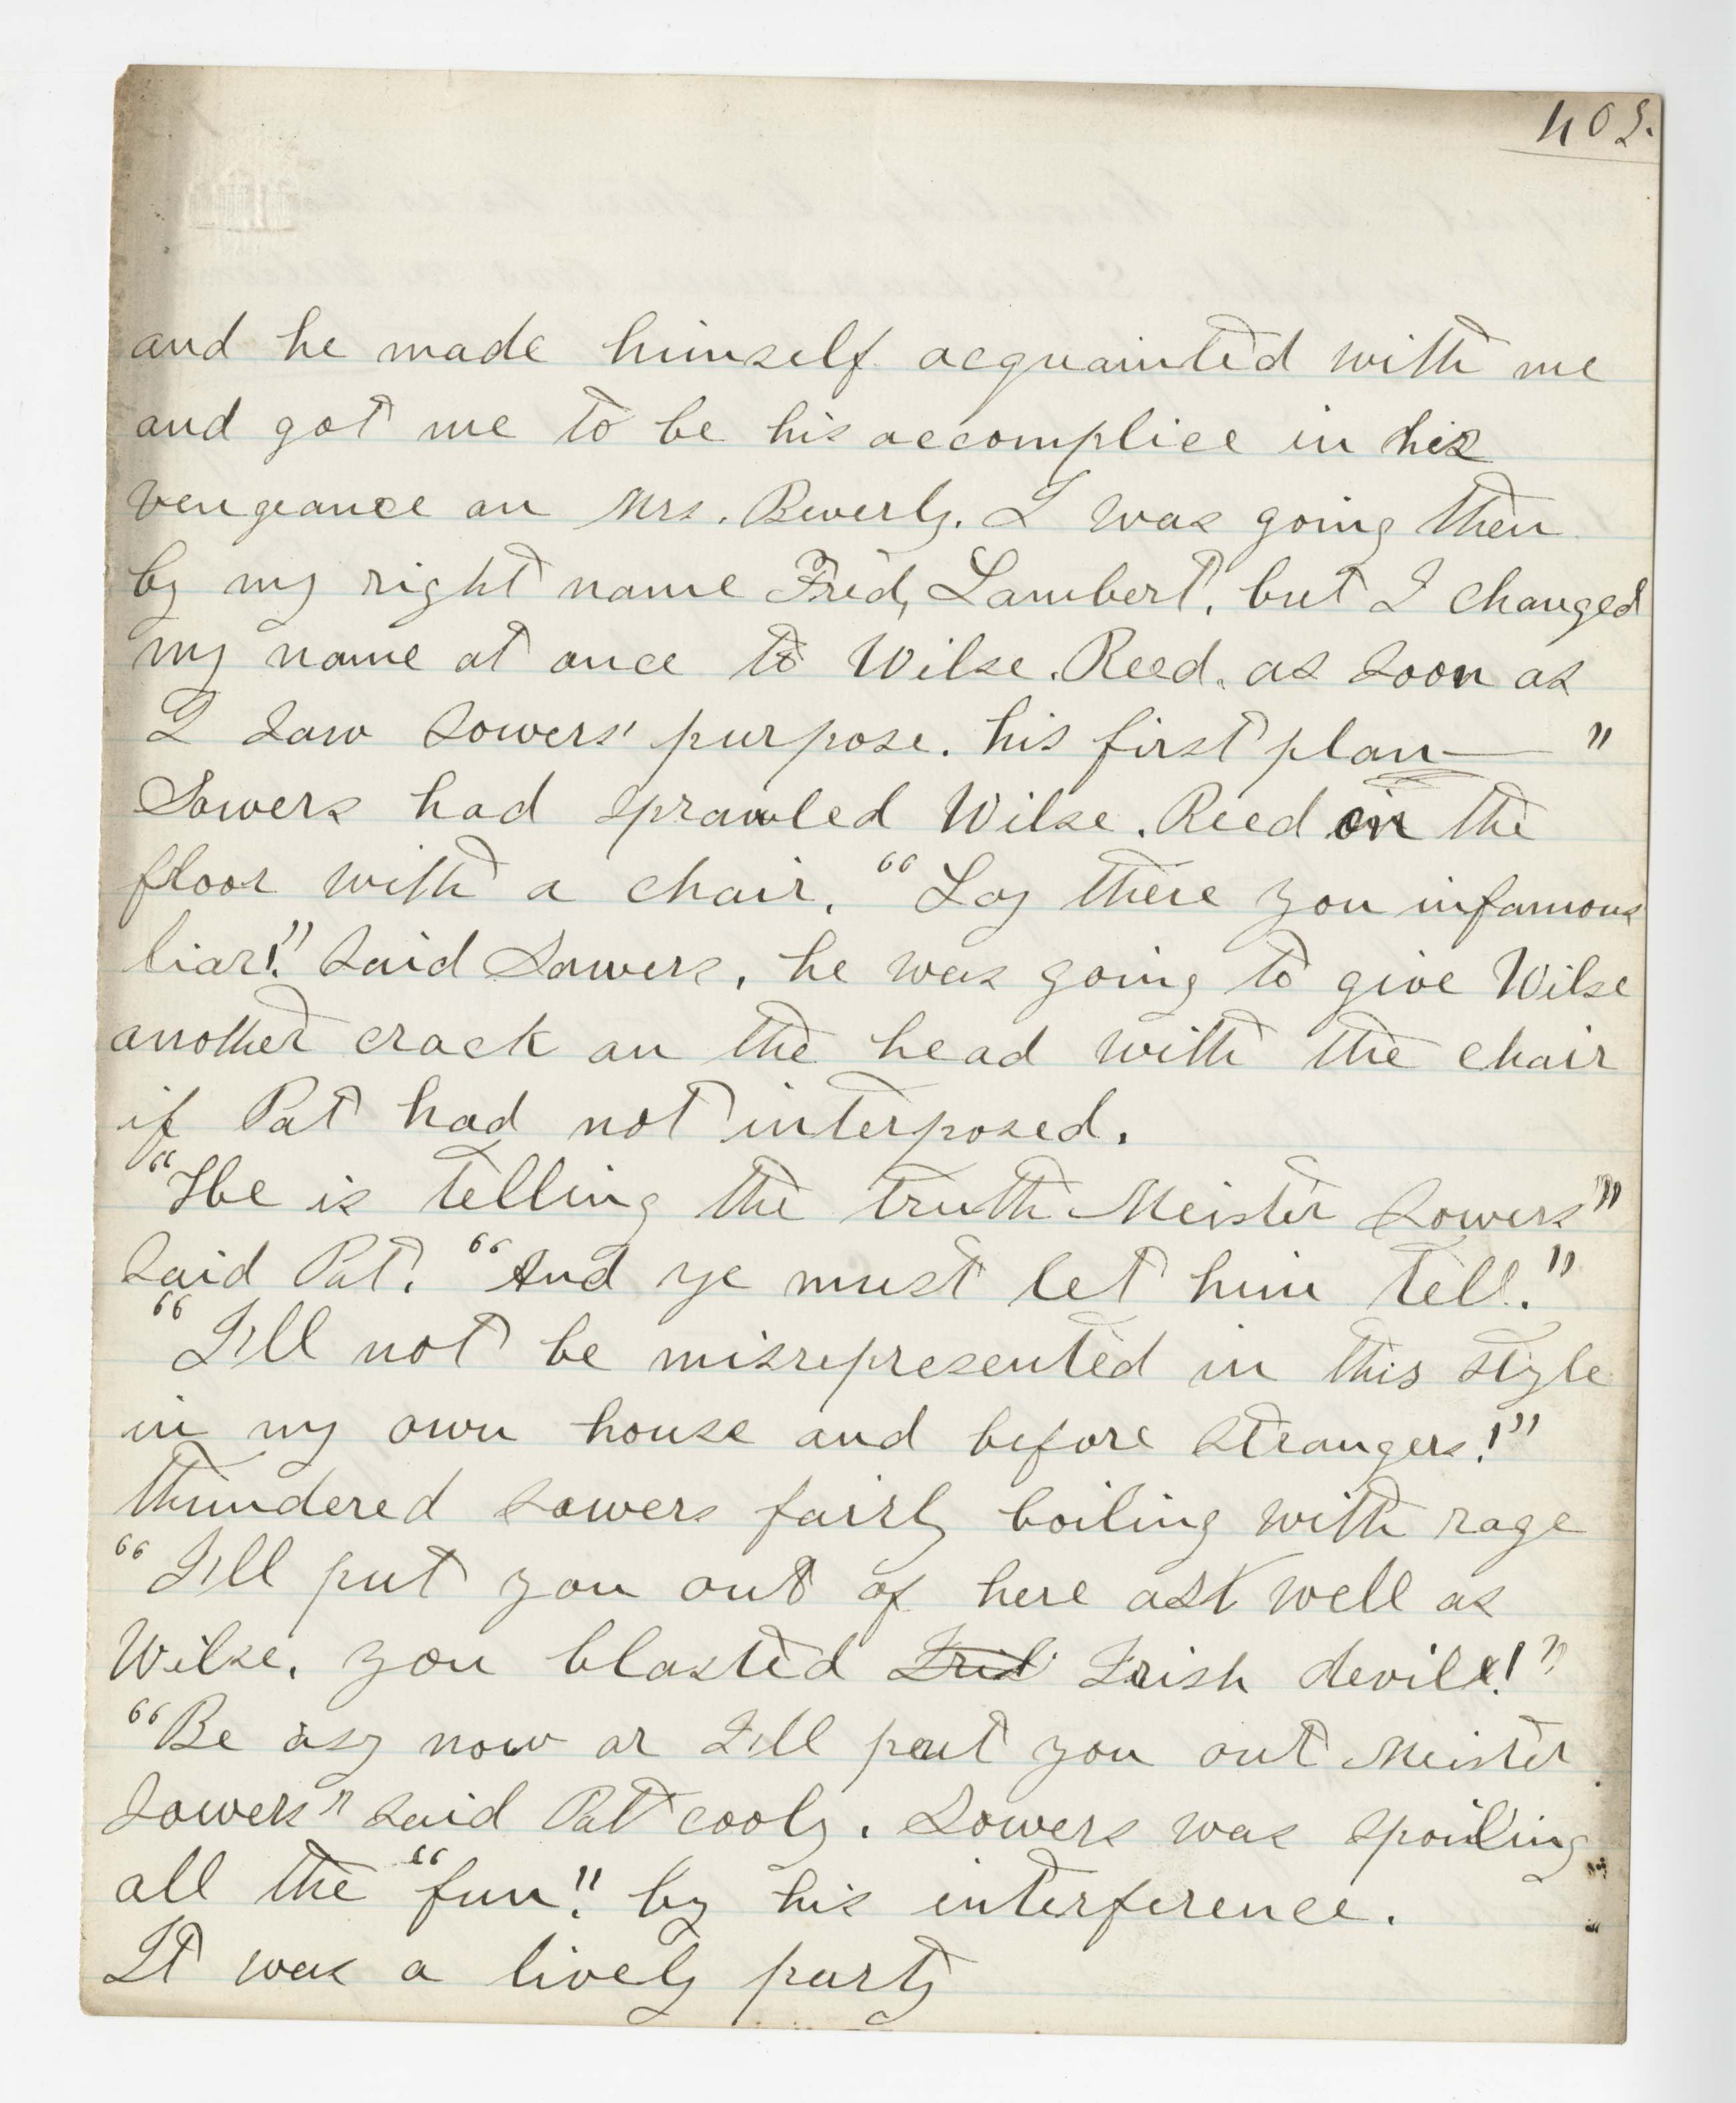 402.
and he made himself acquainted with me
and got me to be his accomplice in his
vengeance on Mrs. Beverly. I was going then
by my right name Fred, Lambert, but I changed
my name at once to Wilse. Reed. as soon as
I saw Sowers' purpose. his first plan— "
Sowers had sprawled Wilse. Reed on the
floor with a chair. "Lay there you infamous
liar!" said Sowers, he was going to give Wilse
another crack on the head with the chair
if Pat had not interposed.
"He is telling the truth Meister Sowers"
said Pat. "And ye must let him tell."
"I'll not be misrepresented in this style
in my own house and before strangers!"
thundered Sowers fairly boiling with rage
"I'll put you out of here as well as
Wilse, you blasted Irish devil!"
"Be asy now or I'll put you out Meister
Sowers" said Pat cooly. Sowers was spoiling
all the "fun"! by his interference.
It was a lively party